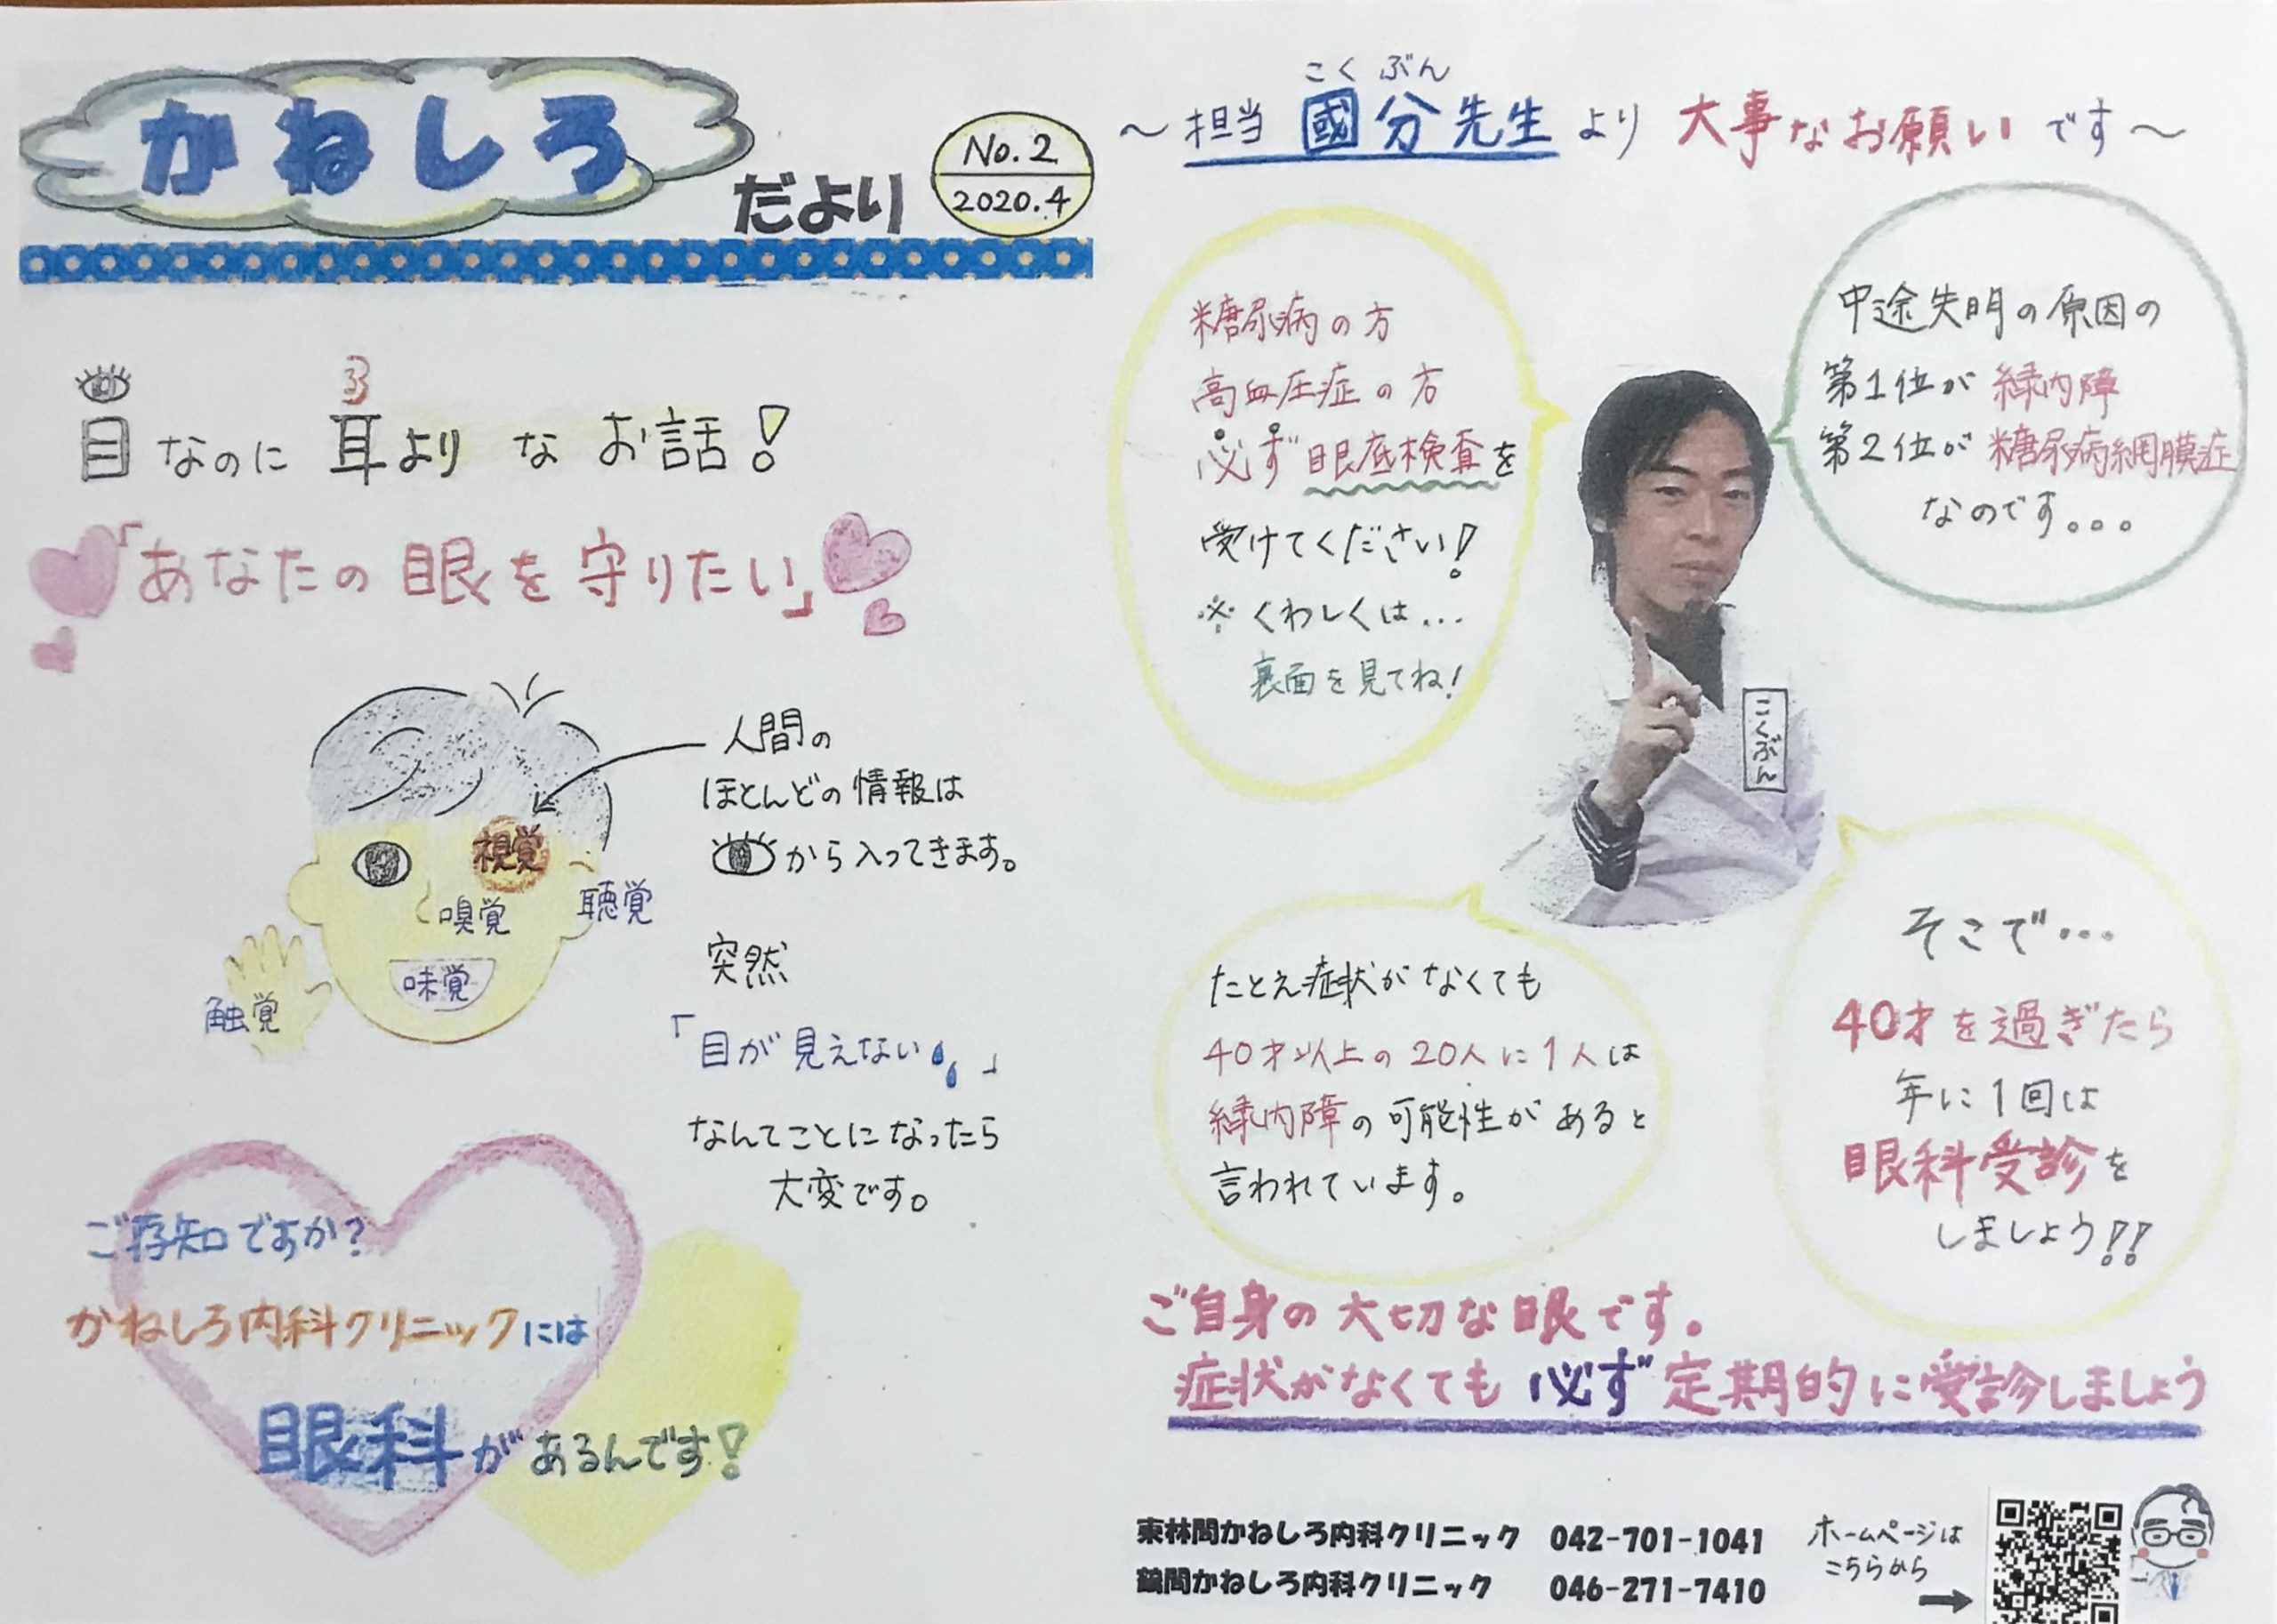 かねしろ
だより
No.2
2020.4
目なのに 耳より な お話!
「あなたの 眼を 守りたい」
人間の
ほとんどの情報は
から入ってきます。
視覚
嗅覚
聴覚
味覚
触覚
突然
「目が見えない」
なんてことになったら
大変です。
ご存知ですか?
かねしろ内科クリニックには
眼科があるんです!
こくぶん
～担当 國分先生 より 大事なお願い です～
糖尿病の方
高血圧症の方
必ず眼底検査を
受けてください!
※くわしくは…
裏面を見てね!
中途失明の原因の
第1位が 緑内障
第2位が 糖尿病網膜症
なのです。。。
こくぶん
たとえ症状がなくても
40才以上の20人に1人は
緑内障の可能性があると
言われています。
そこで…
40才を過ぎたら
年に1回は
眼科受診を
しましょう!!
ご自身の大切な眼です。
症状がなくても 必ず 定期的に受診しましょう
東林間かねしろ内科クリニック 042-701-1041
鶴間かねしろ内科クリニック 046-271-7410
ホームページは
こちらから